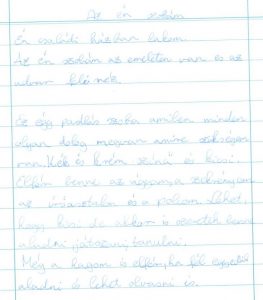 Az én szobám
Én családi házban lakom.
Az én szobám az emeleten van és az
udvar
Ez egy padlás szoba amiben minden
olyan dolog megvan amire szükségem
van. Kék és krém színű és kicsi.
Elfér benne az ágyam, a szekrényem
az íróasztalom és a polcom. Lehet,
hogy kicsi de akkor is szeretek benne
aludni, játszani, tanulni.
Még a hugom is elfér, ha fel
aludni és lehet olvasni is.